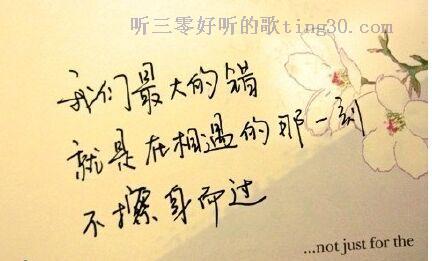 听三零好听的歌ting30.com
我们最大的错
就是在相遇的那一刻
不擦身而过
...not just for the